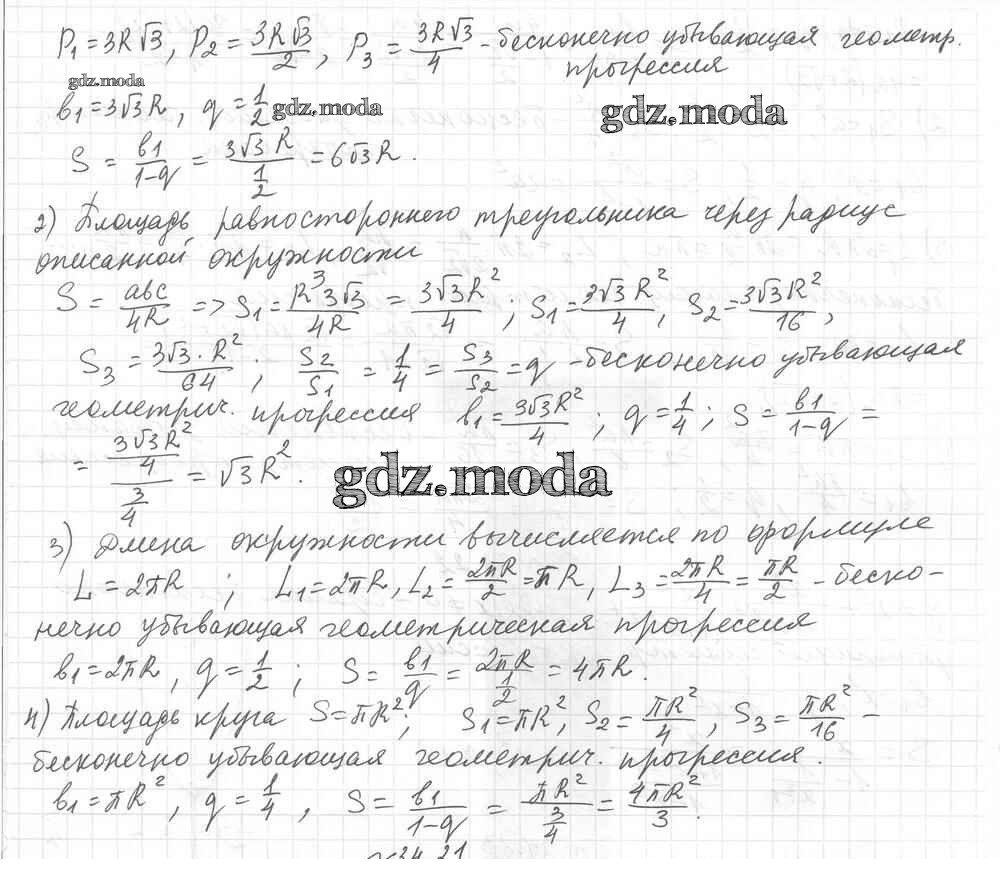 P₁ = 3R√3, P₂ = 3R√3/2, P₃ = 3R√3/4 - бесконечно убывающая геометр.
прогрессия
gdz.moda
b₁ = 3√3R, q = 1/2 gdz.moda gdz.moda
S = b1/(1-q) = 3√3R/(1/2) = 6√3R.
2) Площадь равностороннего треугольника через радиус
описанной окружности
S = abc/4R => S₁ = R³3√3/4R = 3√3R²/4; S₁ = 3√3R²/4, S₂ = 3√3R²/16,
S₃ = 3√3·R²/64; S₂/S₁ = 1/4 = S₃/S₂ = q - бесконечно убывающая
геометрич. прогрессия b₁ = 3√3R²/4; q = 1/4; S = b1/(1-q) =
= (3√3R²/4)/(3/4) = √3R². gdz.moda
3) Длина окружности вычисляется по формуле
L = 2πR; L₁ = 2πR, L₂ = 2πR/2 = πR, L₃ = 2πR/4 = πR/2 - беско-
нечно убывающая геометрическая прогрессия
b₁ = 2πR, q = 1/2; S = b1/q = 2πR/(1/2) = 4πR.
4) Площадь круга S = πR²; S₁ = πR², S₂ = πR²/4, S₃ = πR²/16 -
бесконечно убывающая геометрич. прогрессия.
b₁ = πR², q = 1/4, S = b1/(1-q) = πR²/(3/4) = 4πR²/3.